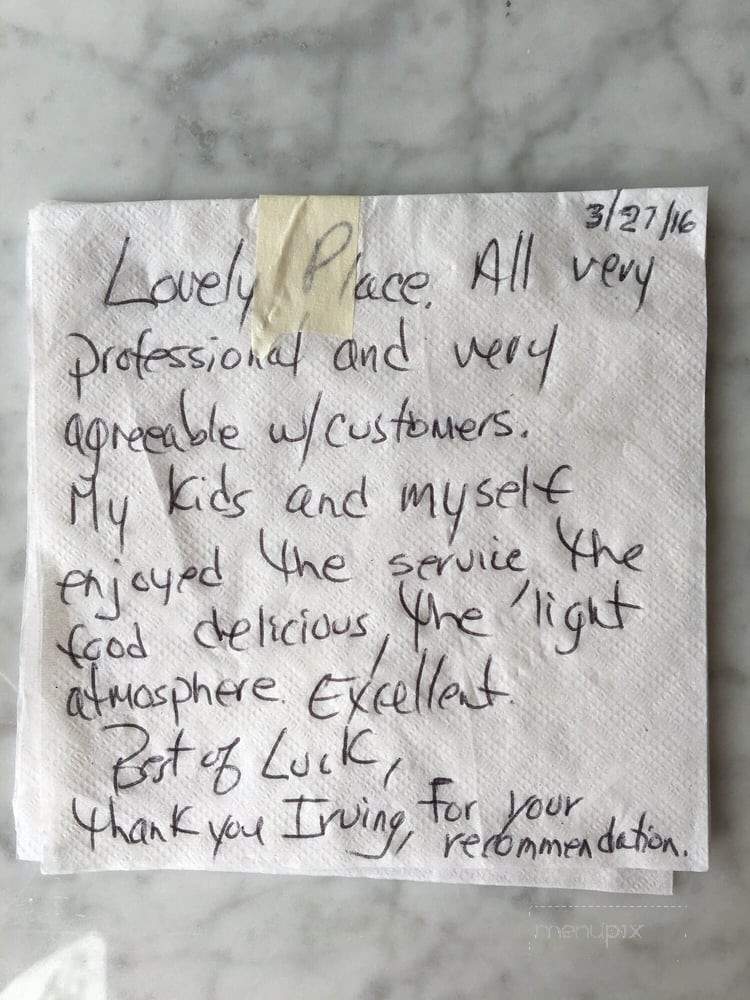 3/27/16
Lovely Place. All very
professional and very
agreeable w/customers.
My kids and myself
enjoyed the service, the
food delicious, the light
atmosphere. Excellent.
Best of Luck,
thank you Irving, for your
recommendation.
menupix